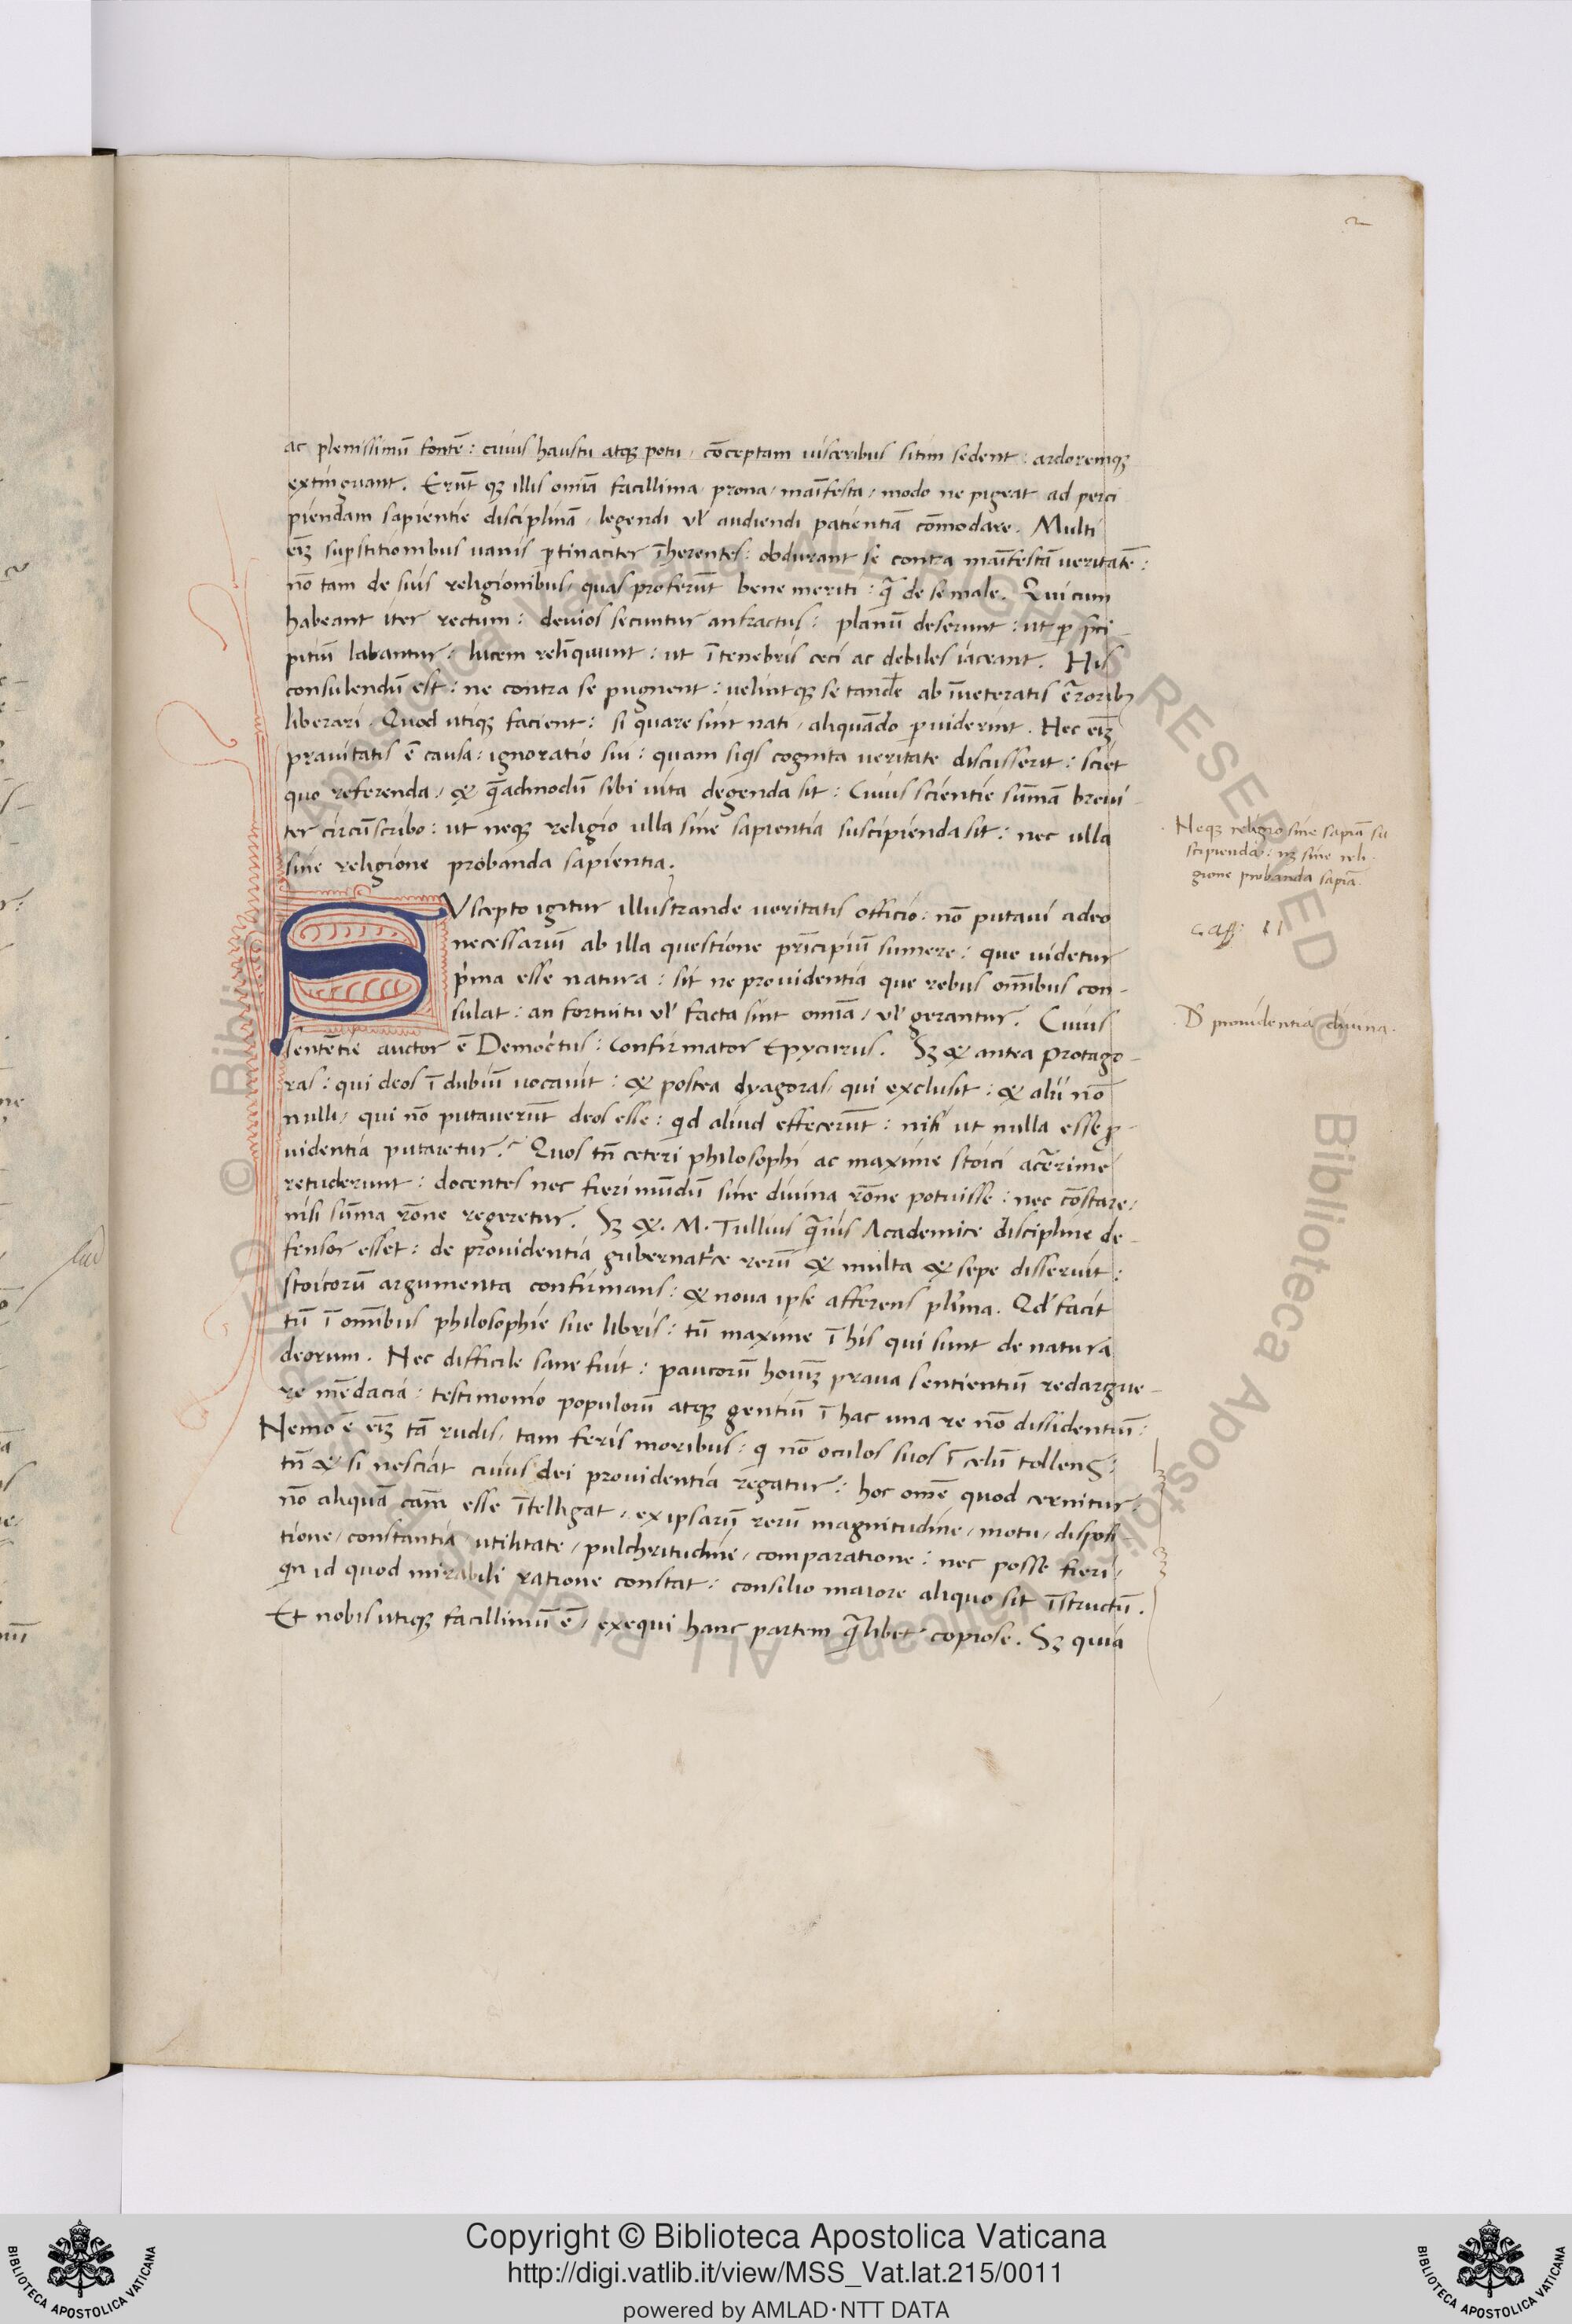 2
ac plenissimū fontē: cuius haustu atqꝫ potu, cōceptam uisceribus sitim sedent: ardoremqꝫ
extinguant. Erūt qꝫ illis omīa facillima, prona, maīfesta, modo ne pigeat ad perci
piendam sapientie disciplinā, legendi ul' audiendi patientiā cōmodare. Multi
eīꝫ supstitionibus uanis ꝑtinaciter īherentes: obdurant se contra maīfestā veritatē:
nō tam de suis religionibus, quas proferūt bene meriti: q̄ de se male. Qui cum
habeant iter rectum: deuios secuntur anfractus: planū deserunt: ut ꝑ p̄ci
pitiū labantur: lucem relīquunt: ut ī tenebris ceci ac debiles iaceant. His
consulendū est: ne contra se pugnent: uelintqꝫ se tandē ab īueteratis ērroribꝫ
liberari. Quod utiqꝫ facient: si quare sint nati, aliquādo ꝑuiderint. Hec eīꝫ
prauitatis ē causa: ignoratio sui: quam siqis cognita ueritate discusserit: sciet
quo referenda, & q̄admodū sibi uita degenda sit: Cuius scientie sūmā breui
ter circūscribo: ut neqꝫ religio ulla sine sapientia suscipienda sit: nec ulla
sine religione probanda sapientia.
Neqꝫ religio sine sapiā su
scipienda: nꝫ sine reli
gione probanda sapiā.
SVscepto igitur illustrande ueritatis officio: nō putaui adeo
necessariū ab illa questione prīcipiū sumere: que uidetur
p'ma esse natura: sit ne prouidentia que rebus omībus con-
sulat: an fortuitu ul' facta sint omīa, ul' gerantur. Cuius
sententie auctor ē Democ'tus: Confirmator Epycurus. Sꝫ & antea protago-
ras: qui deos ī dubiū uocauit: & postea dyagoras, qui exclusit: & alii nō
nulli, qui nō putauerūt deos esse: qid aliud effecerūt: nisi ut nulla esse ꝓ-
uidentia putaretur? Quos tn̄ ceteri philosophi ac maxime stoici acērime
retuderunt: docentes nec fieri mūdū sine diuina rōne potuisse: nec cōstare:
nisi sūma rōne regeretur. Sꝫ &. M. Tullius q̄uis Academice discipline de-
fensor esset: de prouidentia gubernat'ce rerū & multa & sepe disseruit:
stoicorū argumenta confirmans: & noua ipse afferens pl'ima. Qd' facit
tū ī omībus philosophie sue libris: tū maxime ī his qui sunt de natura
deorum. Nec difficile sane fuit: paucorū hoīuꝫ praua sentientiū redargue-
re mēdacia: testimonio populorū atqꝫ gentiū ī hac una re nō dissidentiū:
Nemo ē eīꝫ tā rudis, tam feris moribus: q nō oculos suos ī celū tollens:
tn̄ & si nesciat cuius dei prouidentia regatur: hoc omē quod cernitur:
nō aliquā cam̄ esse ītelligat, ex ipsarū rerū magnitudine, motu, disposi
tione, constantia utilitate, pulchritudine, comparatione: nec posse fieri,
qin id quod mirabili ratione constat: consilio maiore aliquo sit īstructū.
Et nobis utiqꝫ facillimū ē, exequi hanc partem q̄libet copiose. Sꝫ quia
II
D' prouidentia diuina.
Copyright © Biblioteca Apostolica Vaticana
http://digi.vatlib.it/view/MSS_Vat.lat.215/0011
powered by AMLAD·NTT DATA
BIBLIOTECA APOSTOLICA VATICANA
BIBLIOTECA APOSTOLICA VATICANA